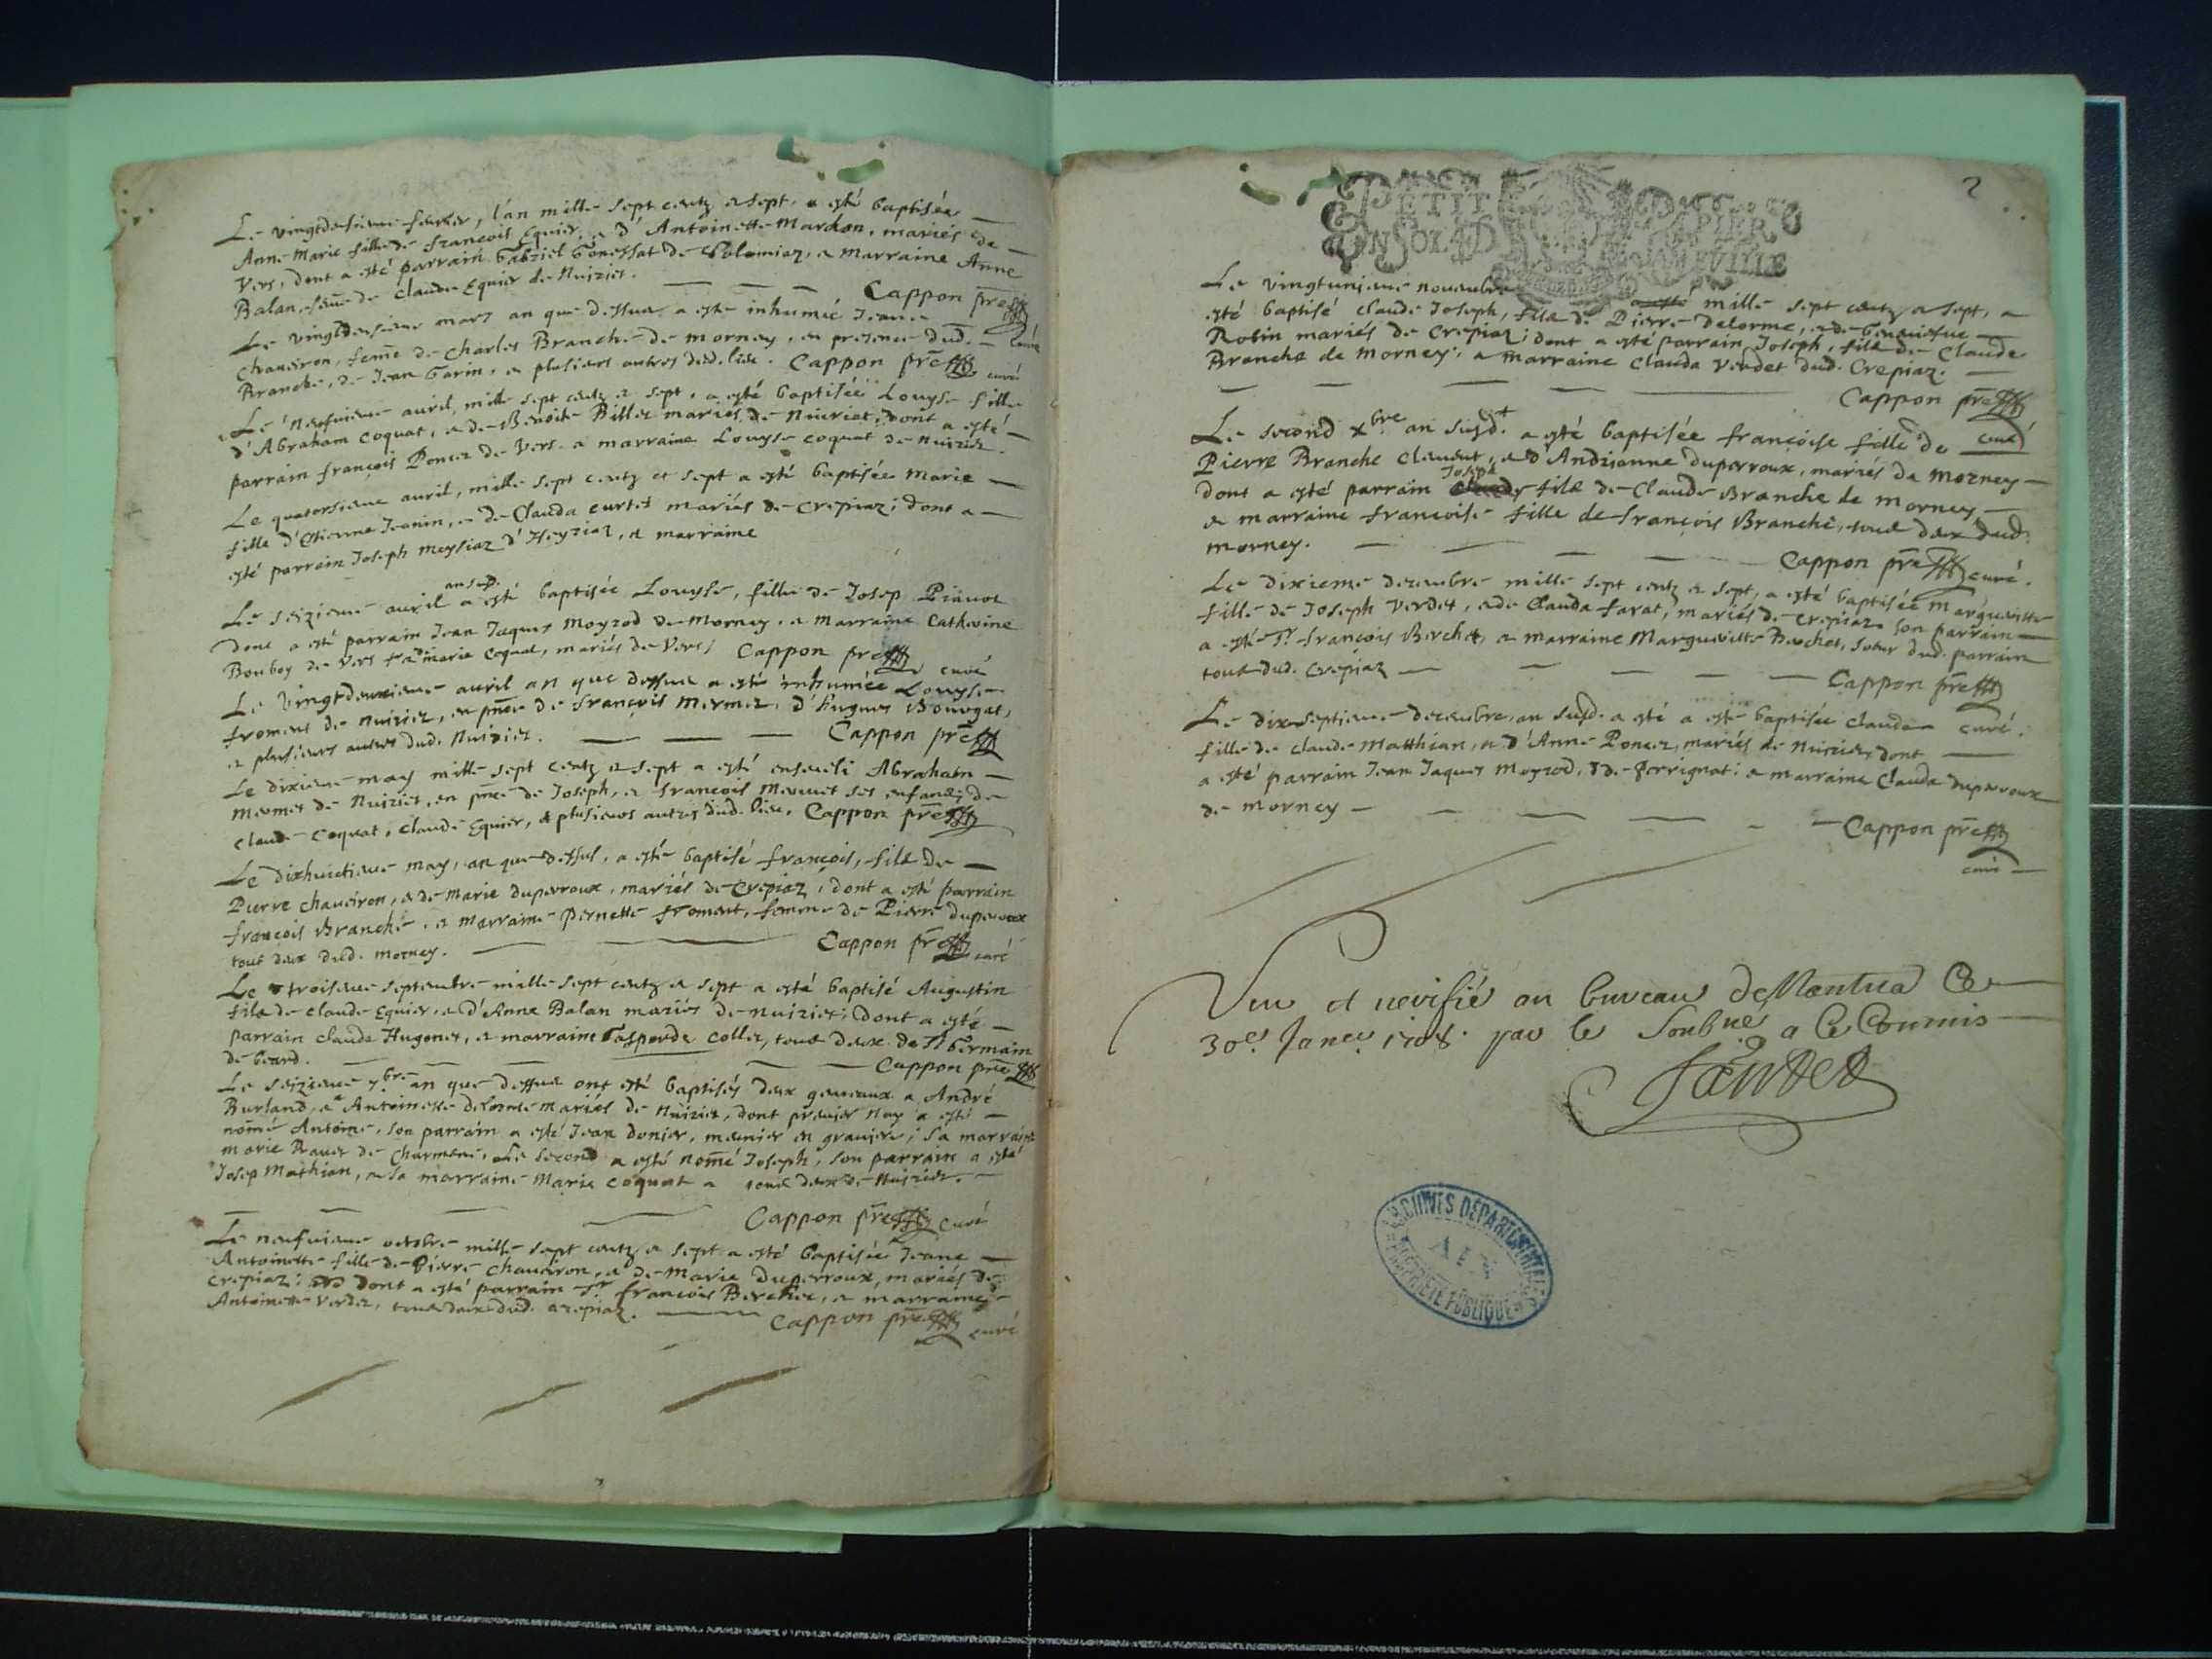 Le vingtdeusieme fevrier, l'an mille sept centz et sept, a esté baptisée
Anne Marie fille de françois Equier, et d'Antoinette Marchon, mariés de
Vers, dont a esté parrain Gabriel Gonessat de Polemiaz, et marraine Anne
Balan, feme de Claude Equier de Nuiriet.
Cappon pre
curé
Le vingtdeusieme mars an que dessus a esté inhumée Jeane
chaveiron, feme de Charles Branche de morney, en presence dud.
Branche, de Jean Garin, et plusieurs autres dud. lieu. Cappon pre curé
Le Neufvieme avril, mille sept centz et sept, a esté baptisée Louyse fille
d'Abraham Coquat, et de Benoite Billet mariés de Nuiriet, dont a esté
parrain françois Poncet de Vers et marraine Louyse coquat de nuiriet.
Le quatorsieme avril, mille sept centz et sept a esté baptisée Marie
fille d'Etienne Jeanin, et de Clauda curtet mariés de Crepiaz; dont a
esté parrain Joseph meysiaz d'Heyriaz, et marraine
Le seizieme avril an sud. a esté baptisée Louyse, fille de Josep Piánot
Dont a esté parrain Jean Jaques Moyrod de Morney, et Marraine Catherine
Bouboy de Vers et marie Coquat, mariés de Vers; Cappon pre curé
Le Vingtdeuxieme avril an que dessus a esté inhumée Louyse
froment de Nuiriet, en pnce de françois Mermet, d'hugues Bouvgat,
et plusieurs autres dud. Nuiriet. Cappon pre
Le dixieme may mille sept centz et sept a esté enseveli Abraham
Mermet de Nuiriet, en pnce de Joseph, et françois Mermet ses enfans; de
Claude Coquat, Claude Equier, et plusieurs autres dud. lieu, Cappon pre
Le dixhuictieme may, an que dessus, a esté baptisé françois, filz de
Pierre chaveiron, et de Marie duperroux, mariés de Crepiaz; dont a esté parrain
françois Branche, et marraine Pernette froment, femme de Pierre duperroux
tous deux dud. morney. Cappon pre curé
Le troisieme septembre mille sept centz et sept a esté baptisé Augustin
filz de Claude Equier, et d'Anne Balan mariés de nuiriet; dont a esté
parrain claude Hugonet, et marraine Gasparde Collet, tous deux de St Germain
de beard. Cappon pre
Le seizieme 7bre an que dessus ont esté baptisés deux gemeaux a André
Burland, et a Antoinette delorme mariés de Nuiriet, dont premier nay a esté
nomé Antoine, son parrain a esté Jean donier, meunier en graviere; sa marraine
marie Ravet de Charmene, Le second a esté nomé Joseph, son parrain a esté
Josep Mathian, et sa marraine Marie coquat a tous deux de Nuiriet.
Cappon pre curé
Le neufvieme octobre mille sept centz et sept a esté baptisée Jeane
Antoinette fille de Pierre chaveiron, et de Marie Duperroux, mariés de
Crepiaz; dont a esté parrain Sr. françois Berchet, et marraine
Antoinette Verdet, tous deux dud. crepiaz. Cappon pre curé
2
PETIT PAPIER
UN SOL 4 D LA FEVILLE
Le vingtunieme novembre mille sept centz et sept, a
esté baptisé claude Joseph, filz de Pierre Delorme, et de Geneviefue
Robin mariés de Crepiaz; dont a esté parrain Joseph, filz de Claude
Branche de Morney; et marraine Clauda Verdet dud. Crepiaz.
Cappon pre
curé
Le second xbre an susdt. a esté baptisée françoise fille de
Pierre Branche clement, et d'Andrianne duperroux, mariés de morney
dont a esté parrain Joseph filz de Claude Branche de morney
et marraine françoise fille de françois Branche, tous deux dud.
morney.
Cappon pre curé.
Le dixieme decembre mille sept centz et sept, a esté baptisée Marguerite
fille de Joseph Verdet, et de Clauda farat, mariés de Crepiaz son parrain
a esté Sr. françois Berchet, et marraine Marguerite Berchet, sœur dud. parrain
tous dud. Crepiaz
Cappon pre
curé.
Le dixseptieme decembre, an susd. a esté a esté baptisée clauda
fille de claude Matthian, et d'Anne Poncet, mariés de Nuiriet, dont
a esté parrain Jean Jaques Moyrod, de Perrignat: et marraine Clauda duperroux
de morney
Cappon pre
curé
Veu et verifié au bureau de Nantua Ce
30e. Janer. 1708. par le Soubné a Ce Commis
Jantet
ARCHIVES DÉPARTEMENTALES
AIN
PROPRIÉTÉ PUBLIQUE